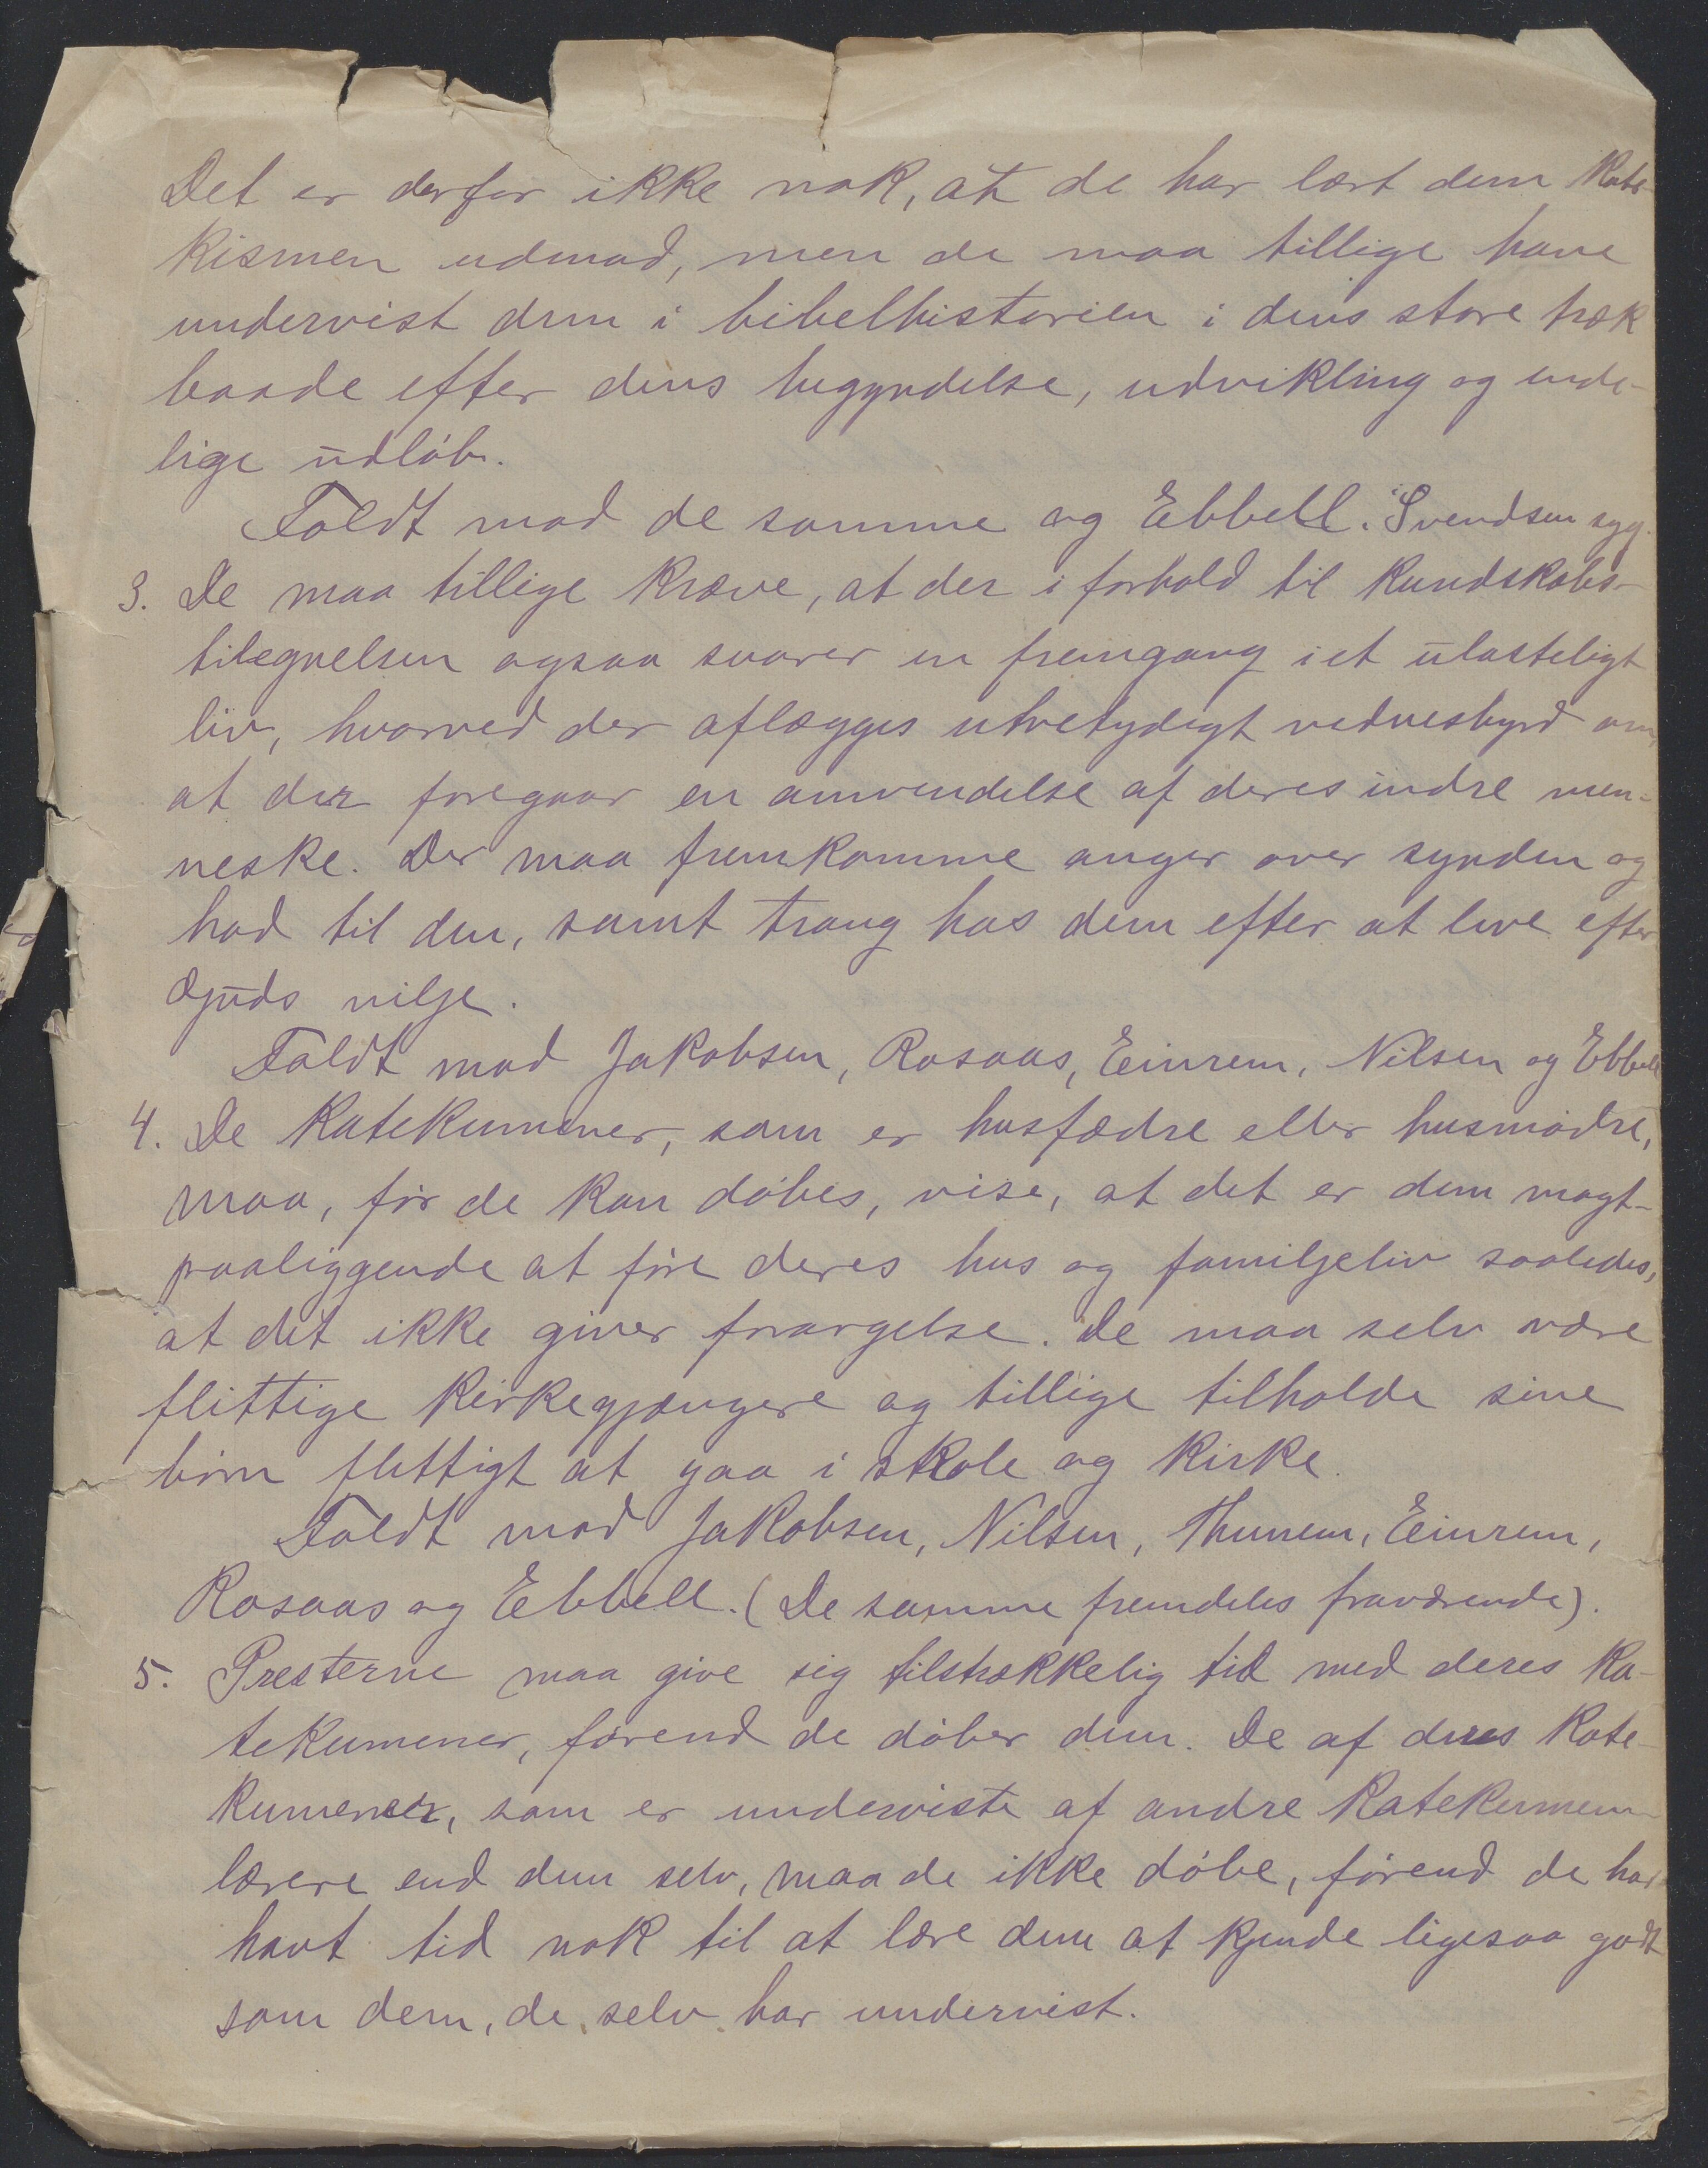 Det er derfor ikke nok, at de har lært dem Kate-
kismen udenad, men de maa tillige have
undervist dem i bibelhistorien i dens store træk
baade efter dens begyndelse, udvikling og ende-
lige udløb.
Faldt mod de samme og Ebbell. Svendsen syg.
3. De maa tillige kræve, at der i forhold til kundskabs-
tilegnelsen ogsaa svarer en fremgang i et ulasteligt
liv, hvorved der aflægges utvetydigt vidnesbyrd om,
at der foregaar en omvendelse af deres indre men-
neske. Der maa fremkomme anger over synden og
had til den, samt trang hos dem efter at leve efter
Guds vilje.
Faldt mod Jakobsen, Rosaas, Einrem, Nilsen og Ebbell
4. De Katekumener, som er husfædre eller husmødre,
maa, før de kan døbes, vise, at det er dem magt-
paaliggende at føre deres hus og familjeliv saaledes,
at det ikke giver forargelse. De maa selv være
flittige kirkegjængere og tillige tilholde sine
børn flittigt at gaa i skole og kirke.
Faldt mod Jakobsen, Nilsen, Thunem, Einrem,
Rosaas og Ebbell. (De samme fremdeles fraværende).
5. Presterne maa give sig tilstrækkelig tid med deres Ka-
tekumener, førend de døber dem. De af deres Kate-
kumener, som er underviste af andre Katekumen-
lærere end dem selv, maa de ikke døbe, førend de har
havt tid nok til at lære dem at kjende ligesaa godt
som dem, de selv har undervist.